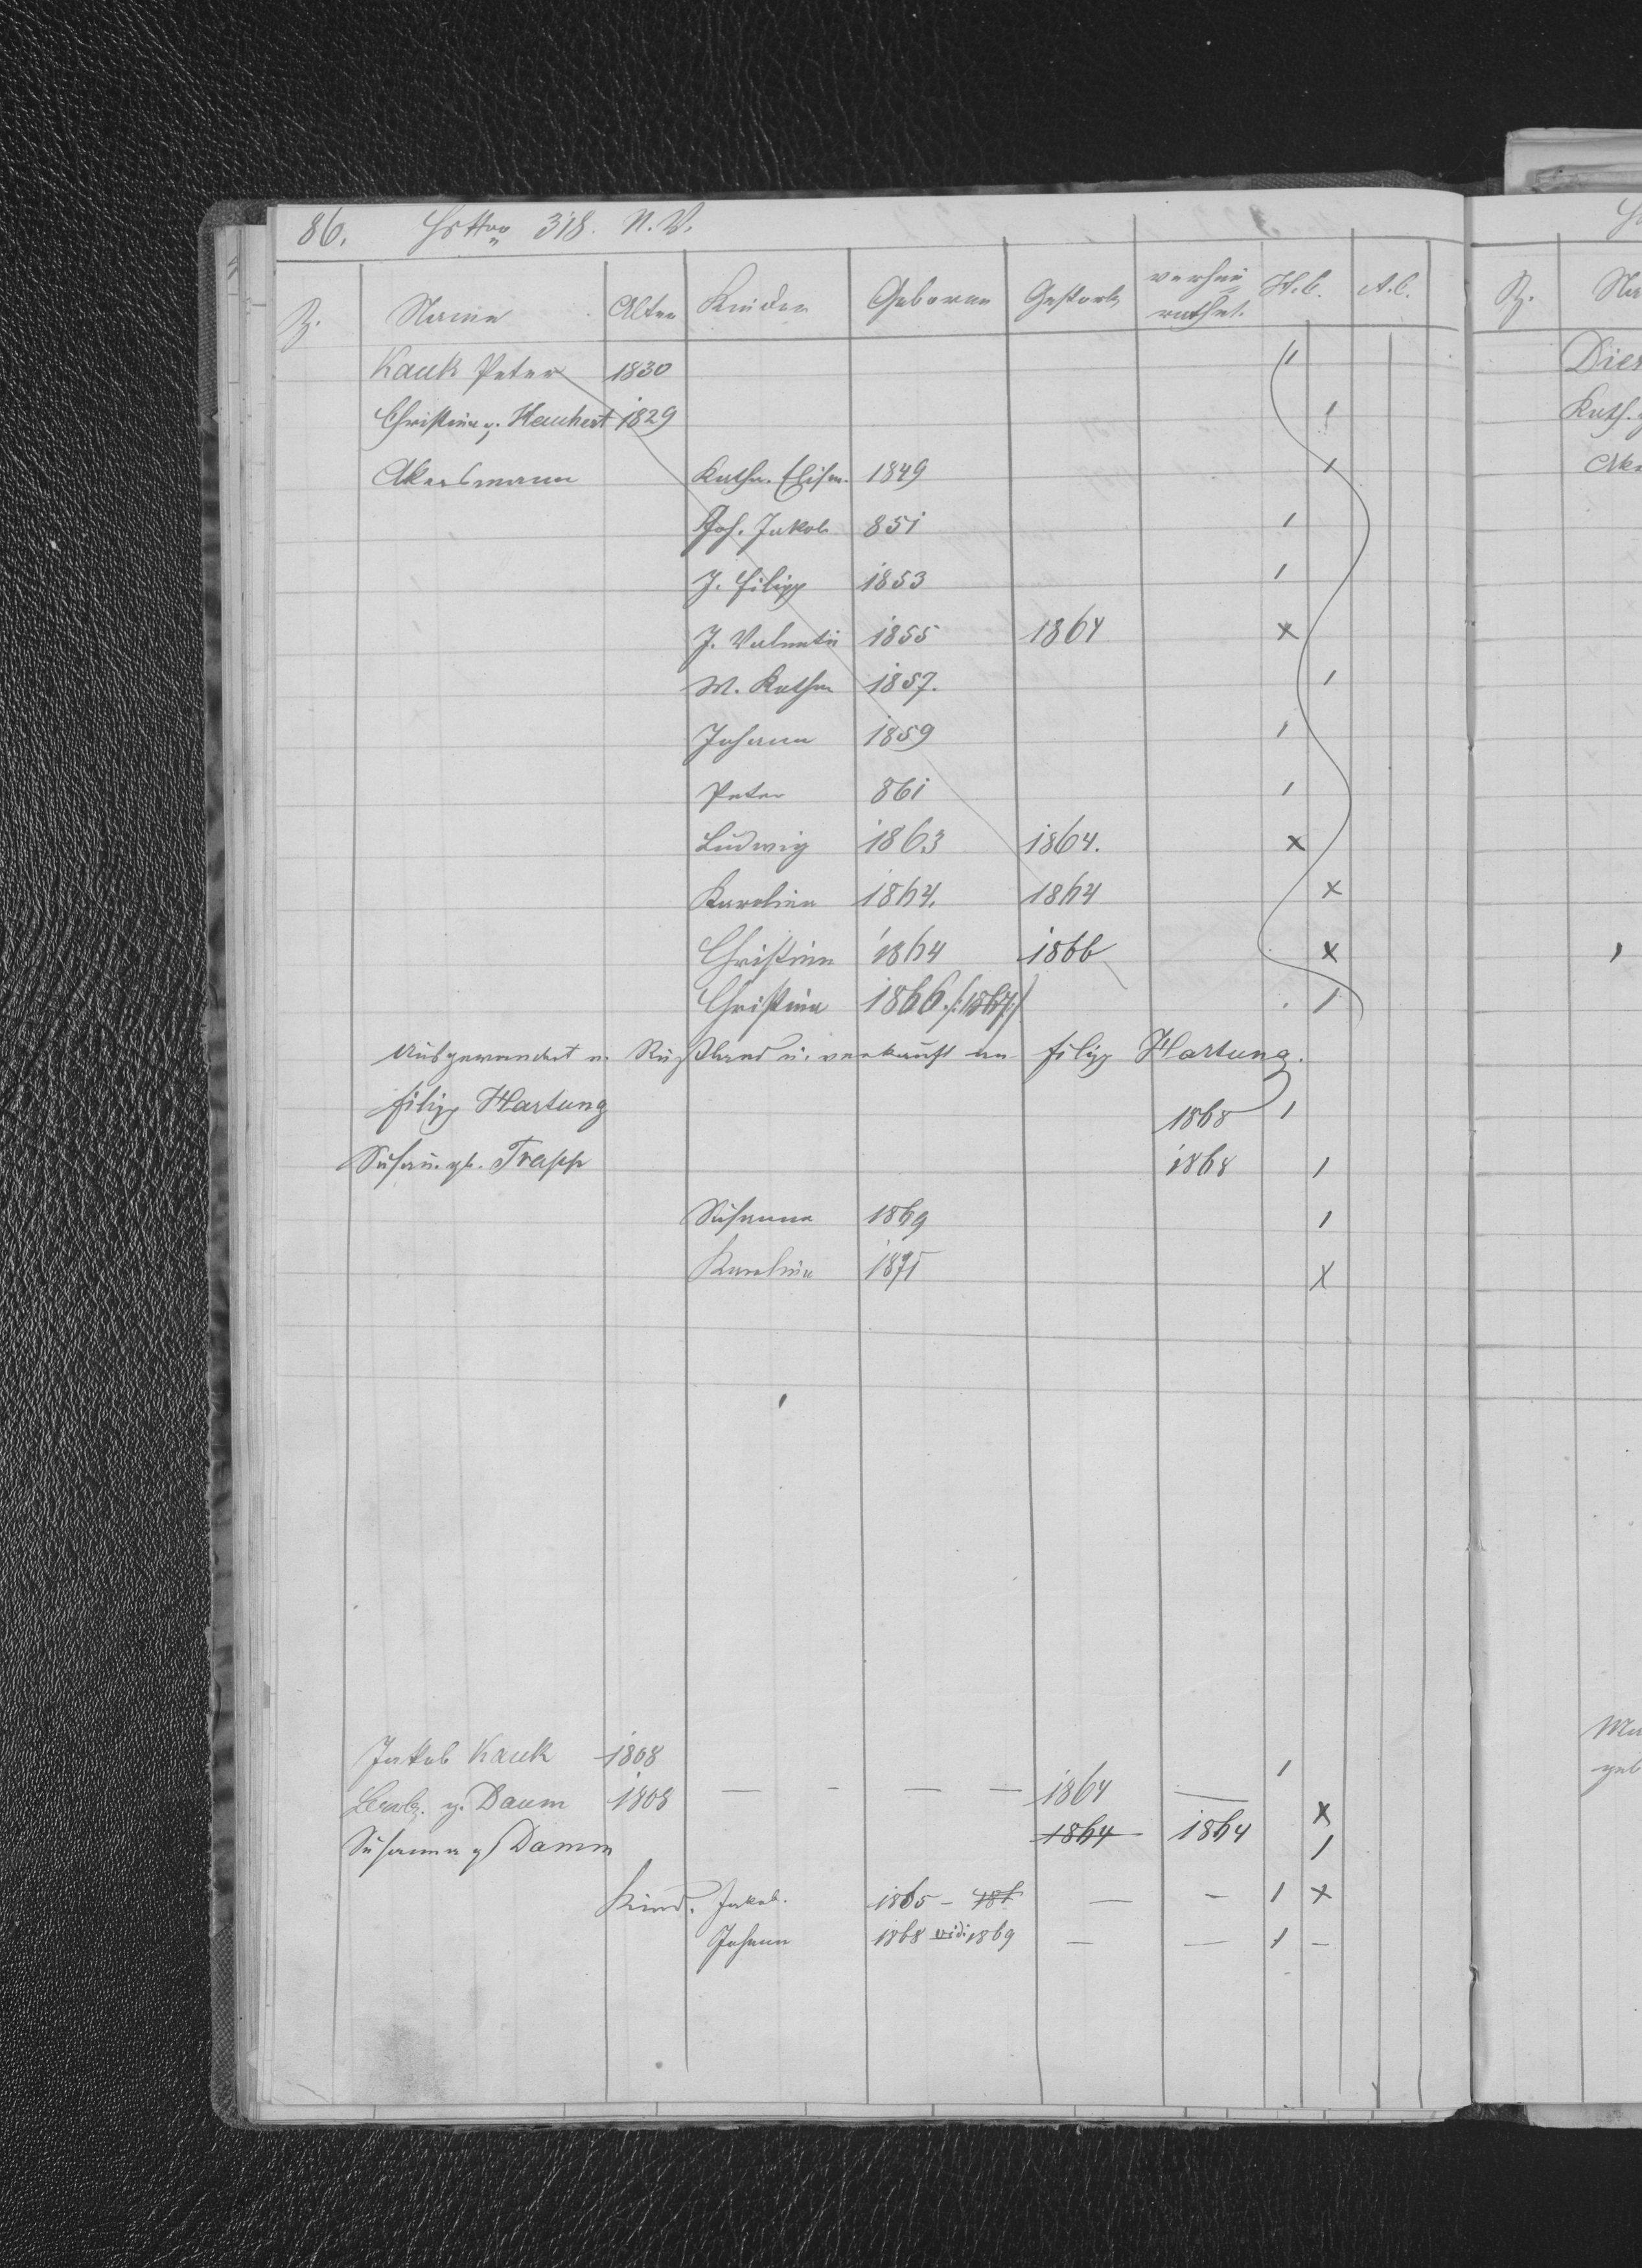 86. 318. N. V.
Z. Name Alter Kinder Geboren Gestorb. verhei
rathet. H.C. A.C.
Kauk Peter 1830
Christina g. Hauhert 1829
Akersmann Kathr. Elisa. 1849
Joh. Jakob 851
J. Filipp 1853
J. Valentin 1855 1864 x
M. Kathar 1857.
Johann 1859
Peter 861
Ludwig 1863 1864. x
Karolina 1864. 1864 x
Christina 1864 1866 x
Christina 1866. /:1867:/
Ausgewandert n. Rußland u. verkauft an Filipp Hartung.
Filipp Hartung 1868
Susan. gb. Trapp 1868
Susanna 1869
Karolina 1871 x
Jakob Kauk 1808
g. Daum 1808 — - — — 1864 — x
Susanna g Damm 1864 1864
Kind. Jakob. 1865 - 186 — - 1 x
Johann 1868 vidi 1869 — — 1 -
Z. Na
Dier
Kath. g
Ake
Ma
geb